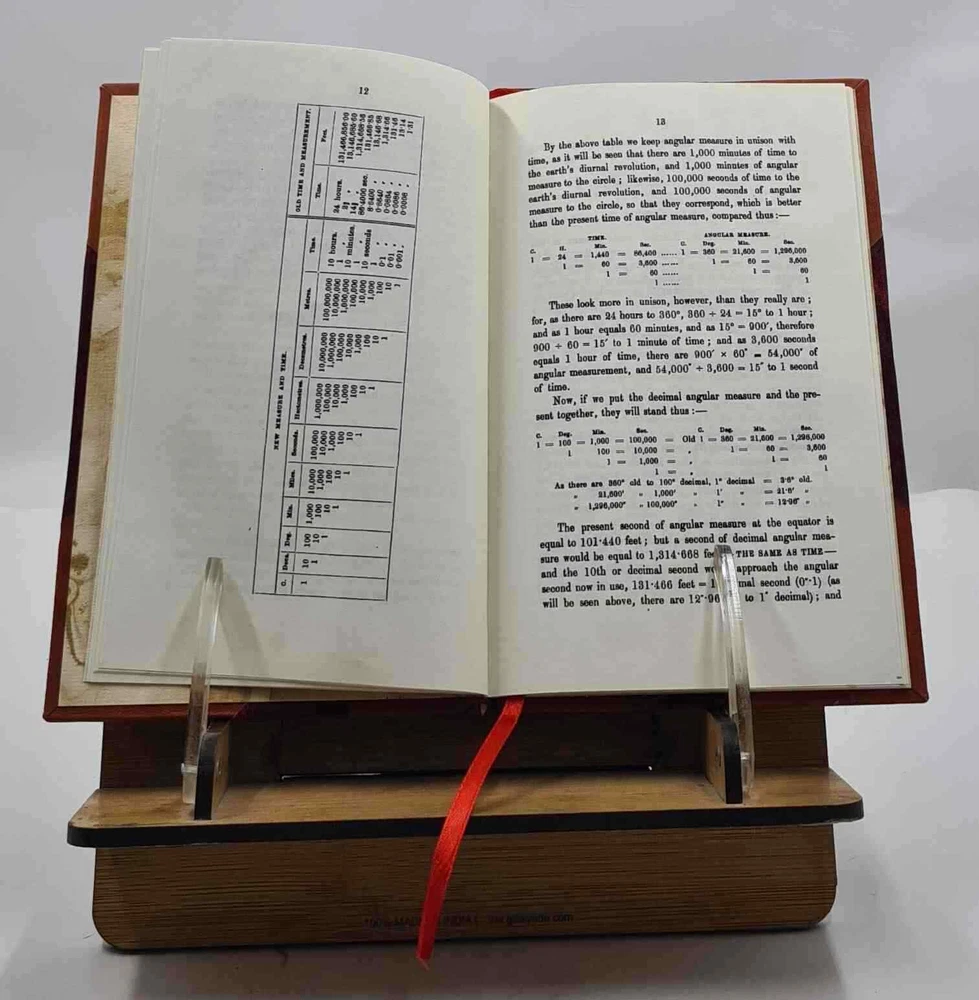 12
NEW MEASURE AND TIME. OLD TIME AND MEASUREMENT.
C. Decs. Deg. Min. Miles. Seconds. Hectometres. Decametres. Metres. Time. Time. Feet.
1 10 100 1,000 10,000 100,000 1,000,000 10,000,000 100,000,000 10 hours. 24 hours. 131,466,856·00
1 10 100 1,000 10,000 100,000 1,000,000 10,000,000 1
1 10 100 1,000 10,000 100,000 1,000,000 10 minutes.
1 10 100 1,000 10,000 100,000 1
1 10 100 1,000 10,000 10 seconds
1 10 100 1,000 1
1 10 100 0·1
1 10 0·01
1 0·001
13
By the above table we keep angular measure in unison with
time, as it will be seen that there are 1,000 minutes of time to
the earth's diurnal revolution, and 1,000 minutes of angular
measure to the circle; likewise, 100,000 seconds of time to the
earth's diurnal revolution, and 100,000 seconds of angular
measure to the circle, so that they correspond, which is better
than the present time of angular measure, compared thus:—
TIME. ANGULAR MEASURE.
C. H. Min. Sec. C. Deg. Min. Sec.
1 = 24 = 1,440 = 86,400 ...... 1 = 360 = 21,600 = 1,296,000
1 = 60 = 3,600 ...... 1 = 60 = 3,600
1 = 60 ...... 1 = 60
1 ...... 1
These look more in unison, however, than they really are;
for, as there are 24 hours to 360°, 360 ÷ 24 = 15° to 1 hour;
and as 1 hour equals 60 minutes, and as 15° = 900′, therefore
900 ÷ 60 = 15′ to 1 minute of time; and as 3,600 seconds
equals 1 hour of time, there are 900′ × 60″ = 54,000″ of
angular measurement, and 54,000″ ÷ 3,600 = 15″ to 1 second
of time.
Now, if we put the decimal angular measure and the pre-
sent together, they will stand thus:—
C. Deg. Min. Sec. C. Deg. Min. Sec.
1 = 100 = 1,000 = 100,000 = Old 1 = 360 = 21,600 = 1,296,000
1 100 = 10,000 = „ 1 = 60 = 3,600
1 = 1,000 = „ 1 = 60
1 = „ 1
As there are 360° old to 100° decimal, 1° decimal = 3·6° old.
„ 21,600′ „ 1,000′ „ 1′ „ = 21·6′ „
„ 1,296,000″ „ 100,000″ „ 1″ „ = 12·96″ „
The present second of angular measure at the equator is
equal to 101·440 feet; but a second of decimal angular mea-
sure would be equal to 1,314·668 THE SAME AS TIME—
and the 10th or decimal second approach the angular
second now in use, 131·466 feet = 1 mal second (0″·1) (as
will be seen above, there are 12″·96 to 1″ decimal); and